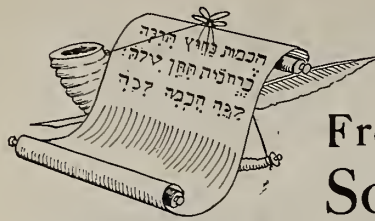 חכמות בחוץ תרנה
ברחבות תתן קולה:
קנה חכמה
Fr
So